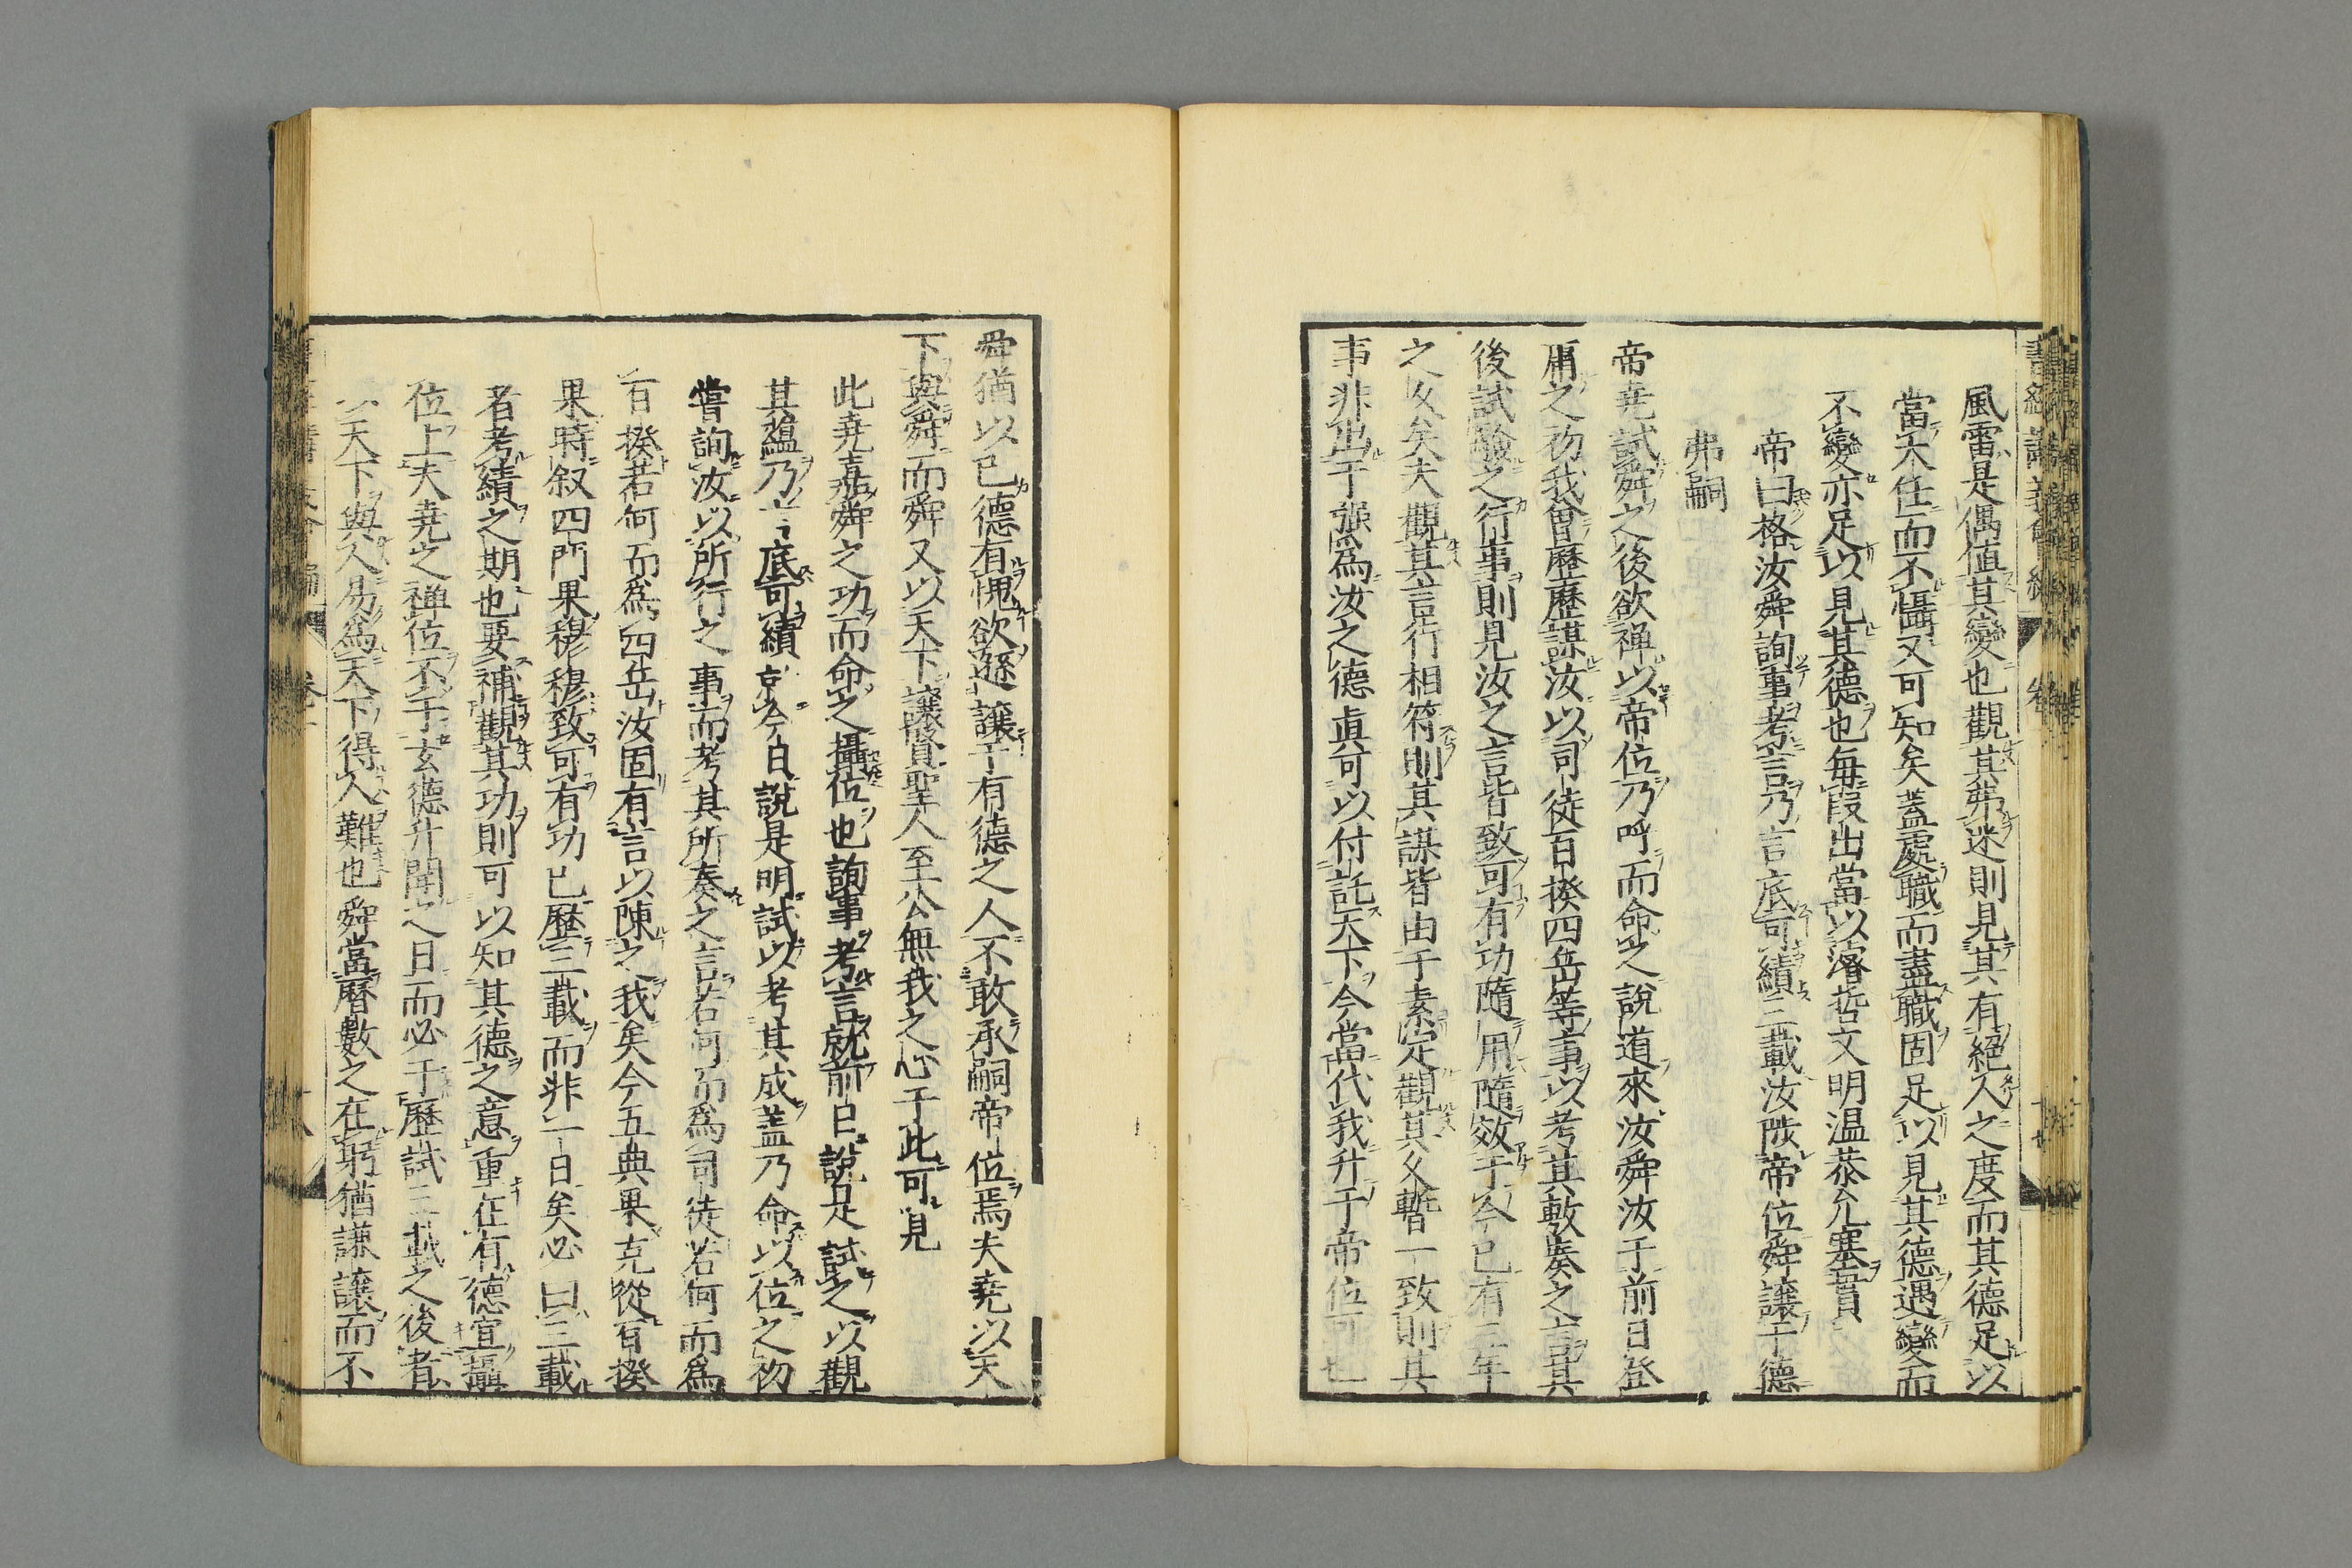 風雷是偶值其變也觀其弗迷則見其有絕人之度而其德足以
當大任而不懾又可知矣蓋處職而盡職固足以見其德遇變而
不變亦足以見其德也毎叚出當以濬哲文明温恭允塞貫
帝曰格汝舜詢事考言乃言底可績三載汝陟帝位舜讓于德
弗嗣
帝堯試舜之後欲禅以帝位乃呼而命之說道來汝舜汝于前日登
庸之初我曾歷歷謀汝以司徒百揆四岳等事以考其敷奏之言其
後試驗之行事則見汝之言皆致可有功隨用隨效于今已有三年
之久矣夫觀其言行相符則其謀皆由于素定觀其久暫一致則其
事非出于强為汝之德真可以付託天下今當代我升于帝位可也
舜猶以已德有愧欲遜讓于有德之人不敢承嗣帝位焉夫堯以天
下與舜而舜又以天下讓賢聖人至公無我之心于此可見
此堯嘉舜之功而命之攝位也詢事考言就前日說足試之以觀
其蘊乃言底可績就今日說是明試以考其成蓋乃命以位之初
嘗詢汝以所行之事而考其所奏之言若何而為司徒若何而為
百揆若何而為四岳汝固有言以陳之我矣今五典果克從百揆
果時叙四門果穆穆致可有功已歷三載而非一日矣必曰三載
者考績之期也要補觀其功則可以知其德之意重在有德宜攝
位上夫堯之禅位不于玄德升聞之日而必于歷試三載之後者
以天下與人易為天下得人難也舜當曆數之在躬猶謙讓而不